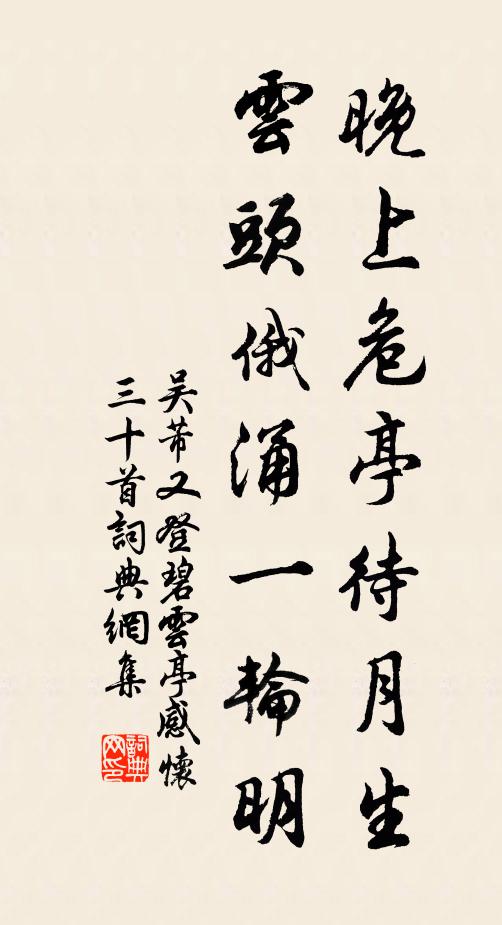 晚上危亭待月生
雲頭俄涌一輪明
吴芾又登碧雲亭感懷
三十首詞典網集
詞典網印